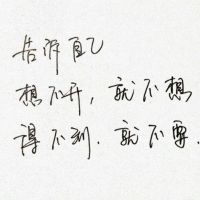 告诉自己
想不开，就不想
得不到．就不要．